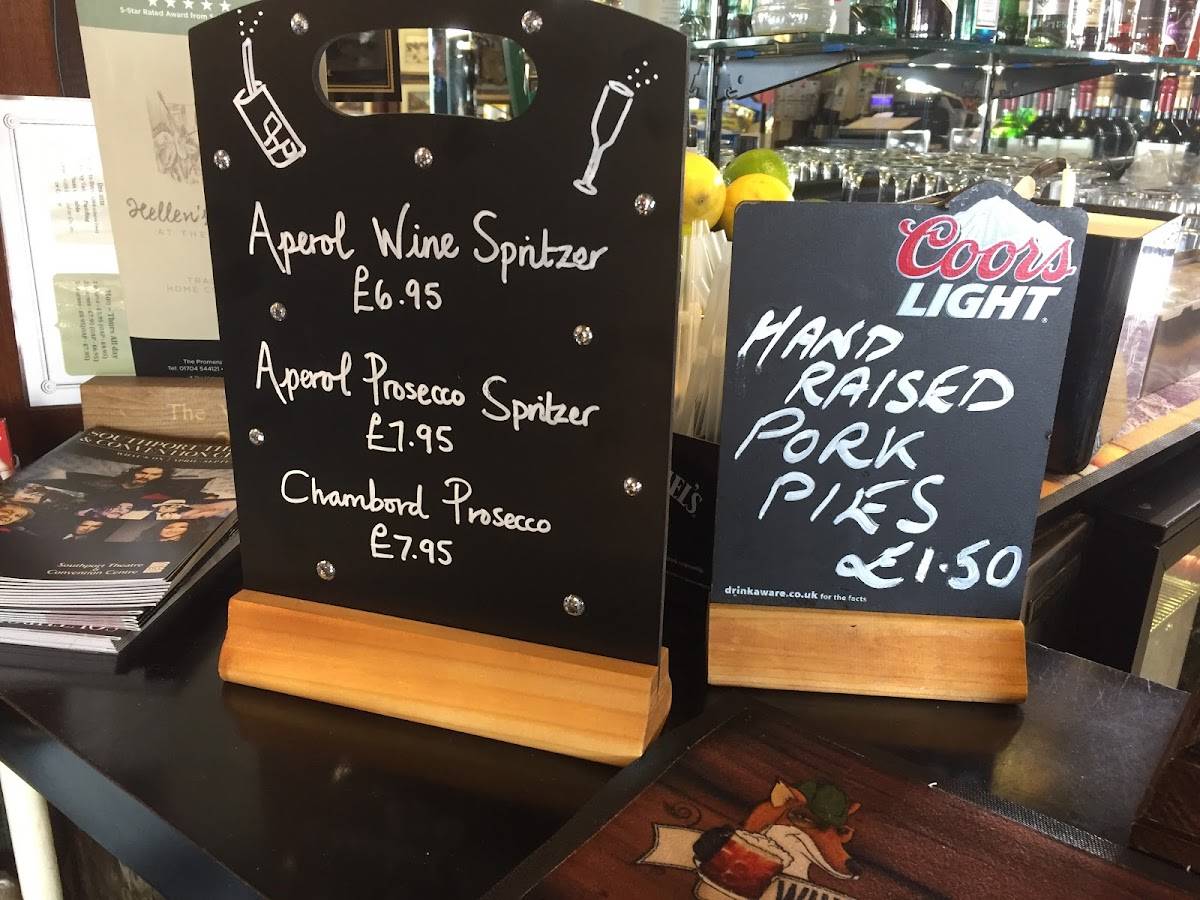 5-Star Rated Award from
Hellen's
AT THE
The Promen
Tel: 01704 544121
The
SOUTHPORT TH
& CONVENTION C
Southport Theatre
& Convention Centre
Aperol Wine Spritzer
£6.95
Aperol Prosecco Spritzer
£7.95
Chambord Prosecco
£7.95
EL'S
Coors
LIGHT
HAND
RAISED
PORK
PIES
£1.50
drinkaware.co.uk for the facts